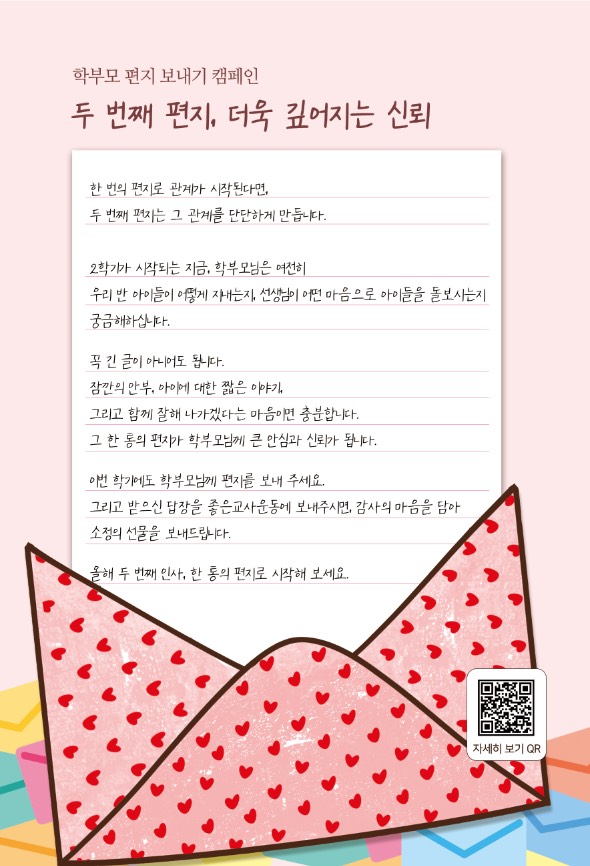 학부모 편지 보내기 캠페인
두 번째 편지, 더욱 깊어지는 신뢰
한 번의 편지로 관계가 시작된다면,
두 번째 편지는 그 관계를 단단하게 만듭니다.
2학기가 시작되는 지금, 학부모님은 여전히
우리 반 아이들이 어떻게 지내는지, 선생님이 어떤 마음으로 아이들을 돌보시는지
궁금해하십니다.
꼭 긴 글이 아니어도 됩니다.
잠깐의 안부, 아이에 대한 짧은 이야기,
그리고 함께 잘해 나가겠다는 마음이면 충분합니다.
그 한 통의 편지가 학부모님께 큰 안심과 신뢰가 됩니다.
이번 학기에도 학부모님께 편지를 보내 주세요.
그리고 받으신 답장을 좋은교사운동에 보내주시면, 감사의 마음을 담아
소정의 선물을 보내드립니다.
올해 두 번째 인사, 한 통의 편지로 시작해 보세요.
자세히 보기 QR